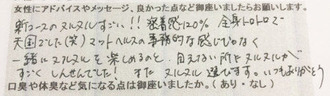 女性にアドバイスやメッセージ、良かった点など御座いましたらお願いします。
新コースのヌルヌルすごい!! 密着感120% 全身トロトロで
天国でした(笑) マットヘルスの事務的な感じじゃなく
一緒にヌルヌルを楽しめるのと、見えない所とヌルヌルが
すごくしんせんでした! また ヌルヌル選びます。いつもありがとう
口臭や体臭など気になる点は御座いましたか。(あり・なし)